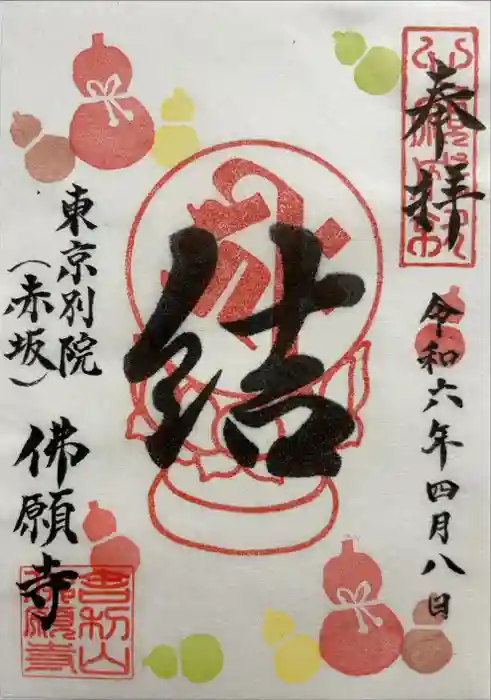 奉拝
令和六年四月八日
結
東京別院
(赤坂)
佛願寺